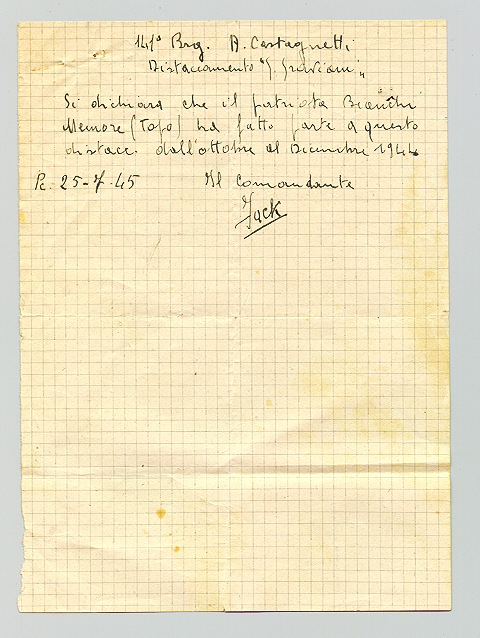 141º Brg. A. Castagnetti
Distaccamento "G. Graviani"
Si dichiara che il patriota Bianchi
Memore (Topo) ha fatto parte a questo
distacc. dall'ottobre al Dicembre 1944
Pc. 25-7-45 Il Comandante
Jack